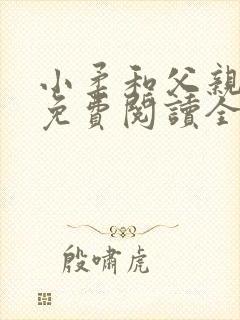 小柔和父親
免費閱讀全
殷嘯虎